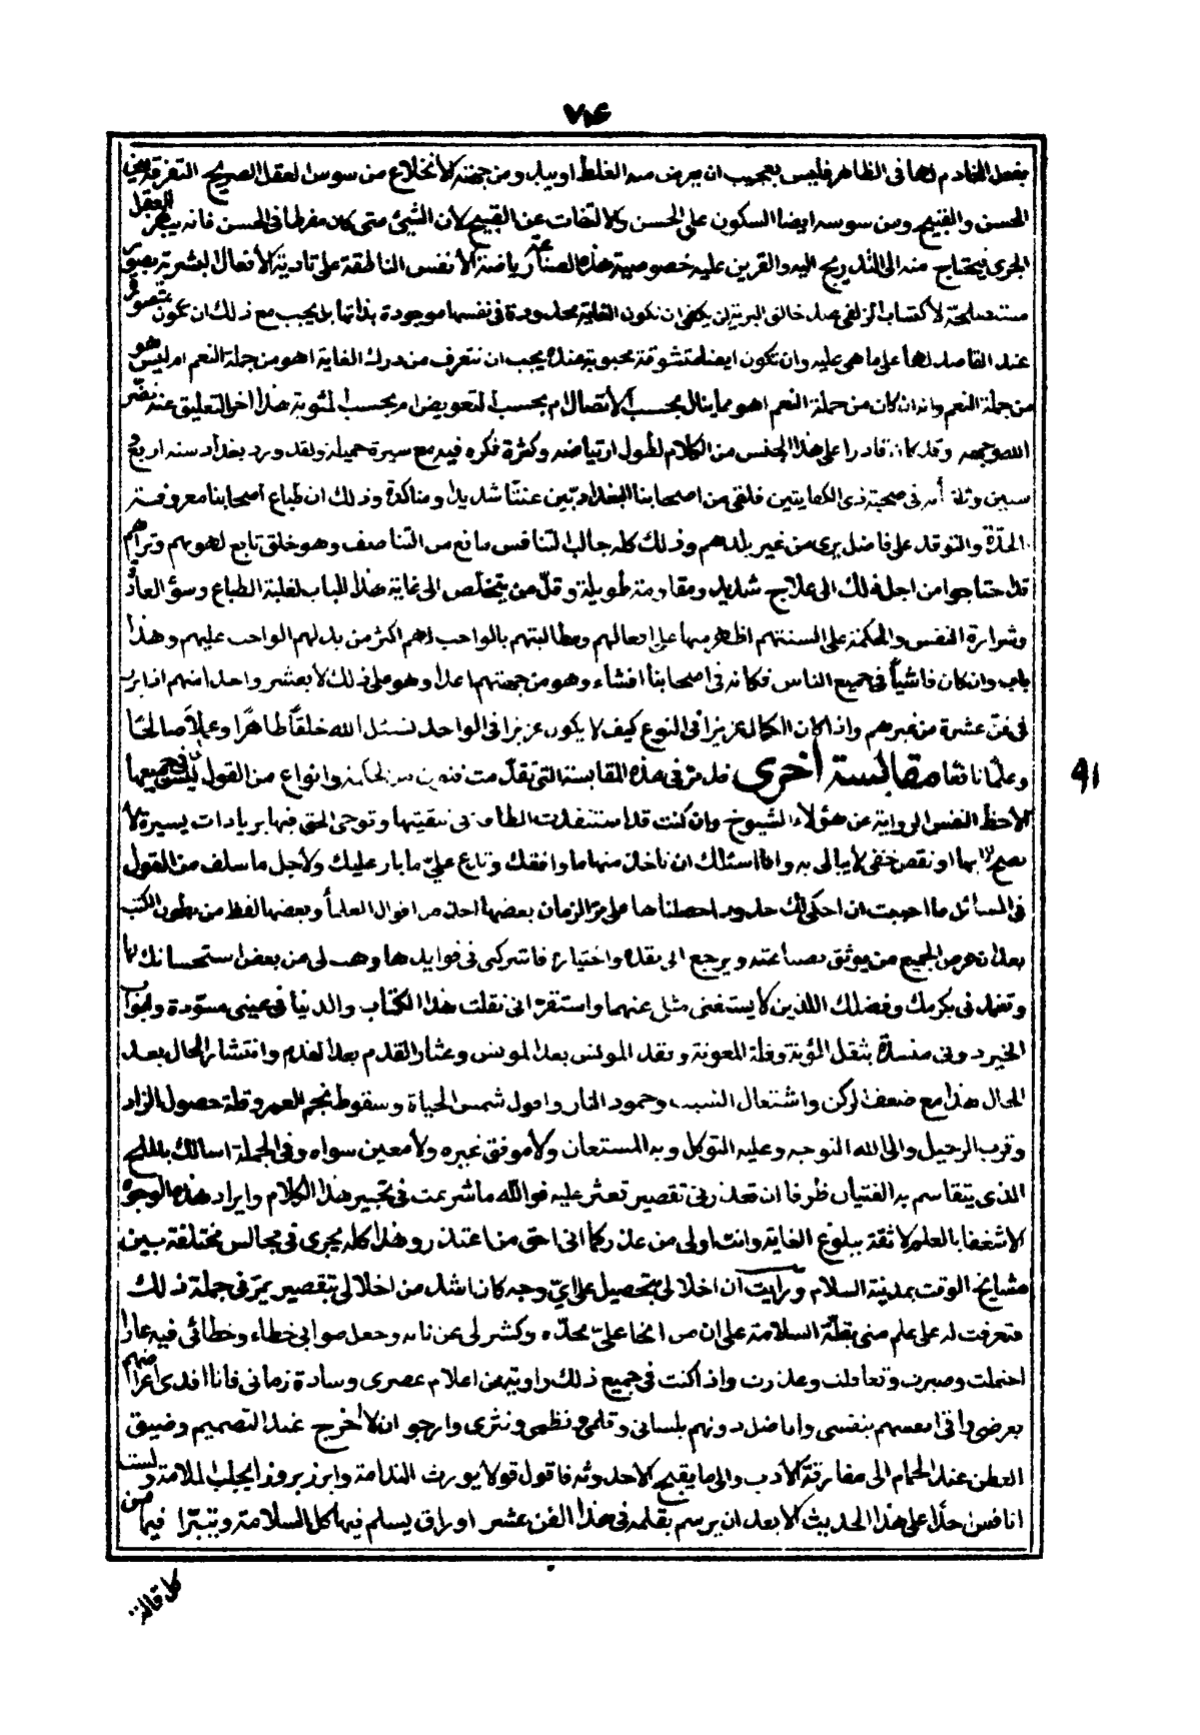 ٧٤
بفعل الخادم لها فى الظاهر فليس بعجيب ان يعرض منه الغلط او يبل ومن جهته كالأنخلاع من سوس العقل الصريح التفرقة بين
الحسن والقبيح ومن سوسه ايضا السكون على الحسن والالتفات عن القبيح لأن الشيئ متى كان مفرطا فى الحسن فانه يبهر العقل
الجرى فيحتاج منه الى التدريج اليه والقرين عليه خصوصية هذه الصناعة رياضة الأنفس الناطقة على تادية الأفعال البشرية بصور
مستصلحة لأكتساب الزلفى عند خالق البرية لن يكفى ان تكون الغاية محدودة فى نفسها موجودة بذاتها بل يجب مع ذلك ان تكون متصورة
عند القاصد لها على ما هى عليه وان تكون ايضا متشوقة محبوبة عنده يجب ان نتعرف من درك الغاية اهو من جملة النعم ام ليس هو
من جملة النعم وانه ان كان من جملة النعم اهو مما ينال بحسب الأتصال ام بحسب التعويض ام بحسب المثوبة هذا اخر التعليق عنه نضّر
الله وجهه وقد كان قادرا على هذا الجنس من الكلام لطول ارتياضه وكثرة فكره فيه مع سيرة جميلة ولقد ورد بغداد سنة اربع و
سبين وثلثمائة فى صحبة ذى الكفايتين فلقى من اصحابنا البغداديين عنتا شديدا ومناكدة وذلك ان طباع اصحابنا معروفة
الحدّة والتوقد على فاضل يرى من غير بلدهم وذلك كله جالب التنافس مانع من التناصف وهو خلق تابع لهويهم وتراهم
قد احتاجوا من اجل ذلك الى علاج شديد ومقاومة طويلة وقلّ من يتخلّص الى غاية هذا الباب لغلبة الطباع وسؤ العادة
وشرارة النفس والحكمة على السنتهم اظهر منها على افعالهم ومطالبتهم بالواجب لهم اكثر من بذلهم الواجب عليهم وهذا
باب وان كان فاشيا فى جميع الناس فكانه فى اصحابنا افشاء وهو من جهتهم اعدا وهو على ذلك لا يعشر واحدا منهم اذا برز
فى فنّ عشرة من غيرهم واذا كان الكمال عزيزا فى النوع كيف لا يكون عزيزا فى الواحد نسئل الله خلقاً طاهرا وعملاً صالحا
وعلما نافعا مقابسة أخرى قد مرّ فى هذه المقابسة التى تقدّمت فنون من الحكمة وانواع من القول ليس فى جميعها
الاحظّ النفس الرواية عن هؤلاء الشيوخ وان كنت قد استنفدت الطاقة فى تنقيتها وتوخى الحق فيها بزيادات يسيرة لا
يصح الا بها او نقص خفى لا يبالى به وانا اسئلك ان تاخذ منها ما وافقك وتدع علىّ ما بار عليك ولأجل ما سلف من القول
فى المسائل ما احببت ان احكى لك حدود احصلناها على مرّ الزمان بعضها اخذ من افواه العلماء وبعضها لقط من بطون الكتب
بعد ان عرض الجميع من يوثق بصناعته ويرجع الى نقده واختياره فاشركنى فى فوايدها وهب لى من بعض استحسانك لها
وتغمدنى بكرمك وفضلك اللذين لا يستغنى مثلى عنهما واستقرّ انى نقلت هذا الكتاب والدنيا فى عينى مستودة وابواب
الخير دونى منسدّة بثقل المؤنة وقلة المعونة وفقد المونس بعد المونس وعثار القدم بعد القدم وانتشار الحال بعد
الحال هذا مع ضعف الركن واشتعال الشيب وخمود النار وافول شمس الحياة وسقوط نجم العمر وقلة حصول الزاد
وقرب الرحيل والى الله التوجه وعليه التوكل وبه المستعان ولا موفق غيره ولا معين سواه وفى الجملة اسالك بالملح
الذى يتقاسم به الفتيان ظرفا ان تعذرنى فى تقصير تعثر عليه فوالله ما شرعت فى تحبير هذا الكلام وايراد هذه الوجوه
الا شغفا بالعلم لا ثقة ببلوغ الغاية وانت اولى من عذر كما انى احق من اعتذر وهذا كله يجرى فى مجالس مختلفة بين
مشايخ الوقت بمدينة السلام ورايت ان اخلالى بتحصيل على اىّ وجه كان اشد من اخلالى بتقصير يمرّ فى جملة ذلك
فتعرفت له على علم منى بقلّة السلامة على ان من انحا علىّ بحدّه وكشر لى عن نابه وجعل صوابى خطاء وخطائى فيه عارا
احتملت وصبرت وتعافلت وعذرت واذا كنت فى جميع ذلك راويا عن اعلام عصرى وسادة زمانى فانا افدى اعراضهم
بعرضى واقى انفسهم بنفسى واناضل دونهم بلسانى وقلمى ونظمى ونثرى وارجو ان لا اخرج عند التصميم وضيق
العطن عند الحمام الى مفارقة الأدب والى ما يقبح الاحدوثه فاقول قولا يورث الندامة وابرز بروزا يجلب الملامة ولست
انافس احدا على هذا الحديث الا بعد ان يرسم بقلمه فى هذا الفن عشر اوراق يسلم فيها كل السلامة ويتبرّا فيها من
٩١
كل قالة